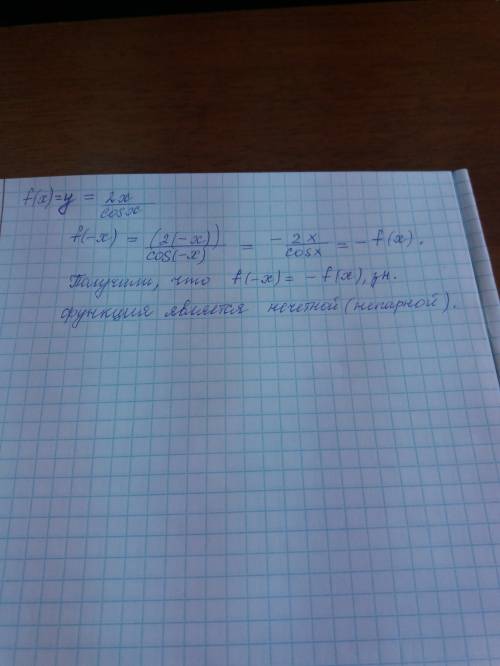 f(x)=y = 2x/cosx
f(-x) = (2(-x))/cos(-x) = - 2x/cosx = - f(x).
Получили, что f(-x) = - f(x), зн.
функция является нечетной (непарной).